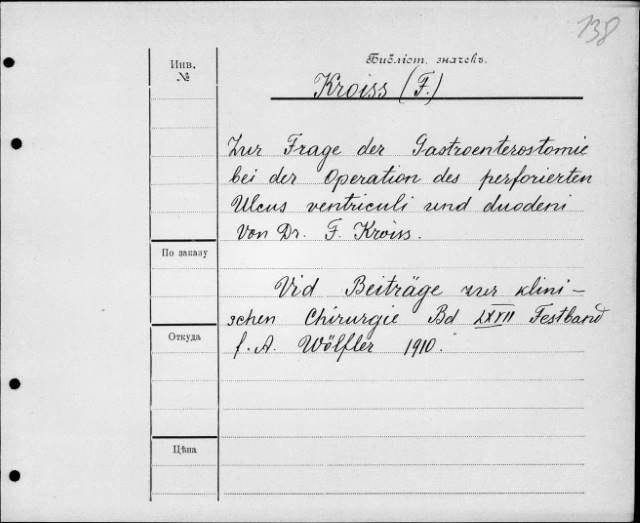 138
Инв.
№
Библіот. значекъ.
Kroiss (F.)
Zur Frage der Gastroenterostomie
bei der Operation des perforierten
Ulcus ventriculi und duodeni
Von Dr. F. Kroiss.
По заказу
Vid Beiträge zur klini-
schen Chirurgie Bd LXVII Festband
Откуда
f. A. Wölfler 1910.
Цѣна